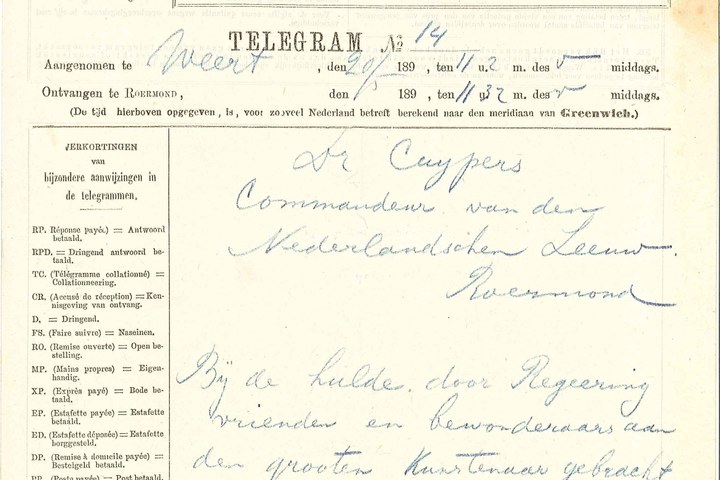 TELEGRAM No 14
Aangenomen te Weert, den 20/5 189 , ten 11 u. 2 m. des v middags.
Ontvangen te ROERMOND, den 189 , ten 11 u. 32 m. des v middags.
(De tijd hierboven opgegeven, is, voor zooveel Nederland betreft berekend naar den meridiaan van Greenwich.)
VERKORTINGEN
van
bijzondere aanwijzingen in
de telegrammen.
RP. Réponse payé.) = Antwoord
betaald.
RPD. = Dringend antwoord be-
taald.
TC. (Télégramme collationné) =
Collationneering.
CR. (Accusé de réception) = Ken-
nisgeving van ontvang.
D. = Dringend.
FS. (Faire suivre) = Naseinen.
RO. (Remise ouverte) = Open be-
stelling.
MP. (Mains propres) = Eigen-
handig.
XP. (Exprès payé) = Bode be-
taald.
EP. (Estafette payée) = Estafette
betaald.
ED. (Estafette déposée) = Estafette
borggesteld.
DP. (Remise à domicile payée) =
Bestelgeld betaald.
PP. (Poste payée) = Post betaald.
Dr Cuypers
Commandeur van den
Nederlandschen Leeuw.
Roermond
Bij de hulde door Regeering
vrienden en bewonderaars aan
den grooten Kunstenaar gebracht